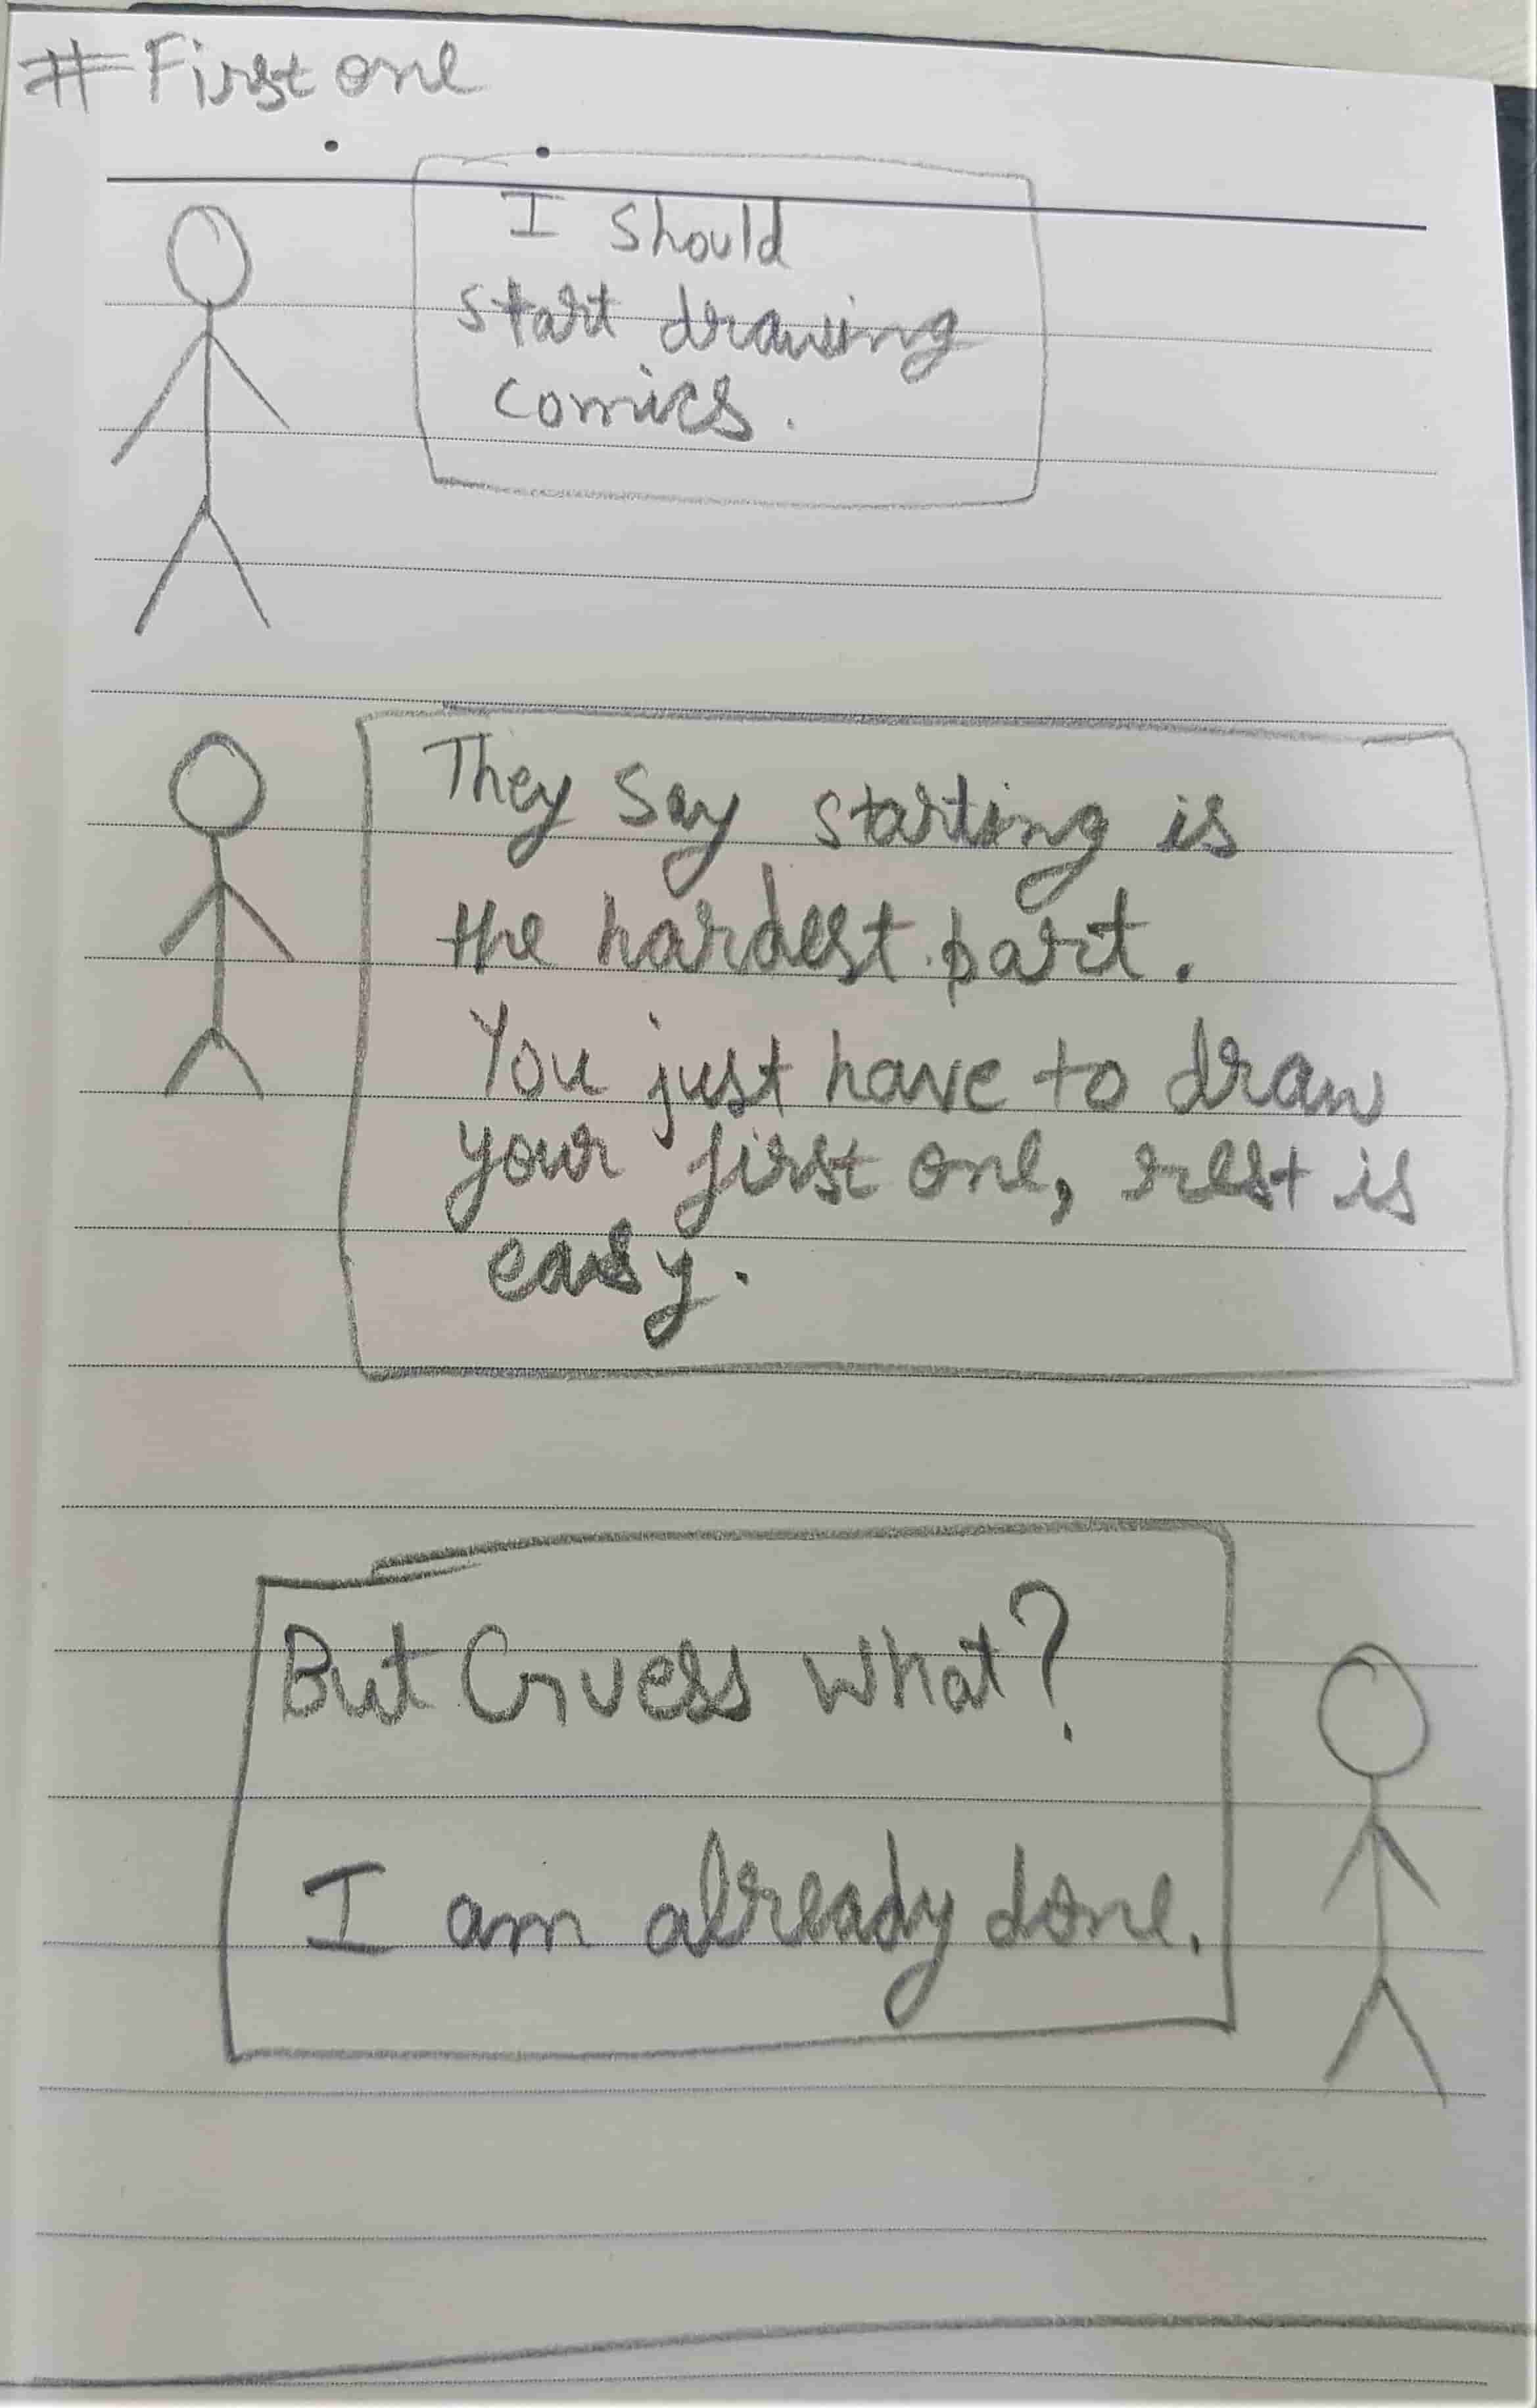 # First one
I should
start drawing
comics.
They say starting is
the hardest part.
You just have to draw
your first one, rest is
easy.
But Guess what?
I am already done.